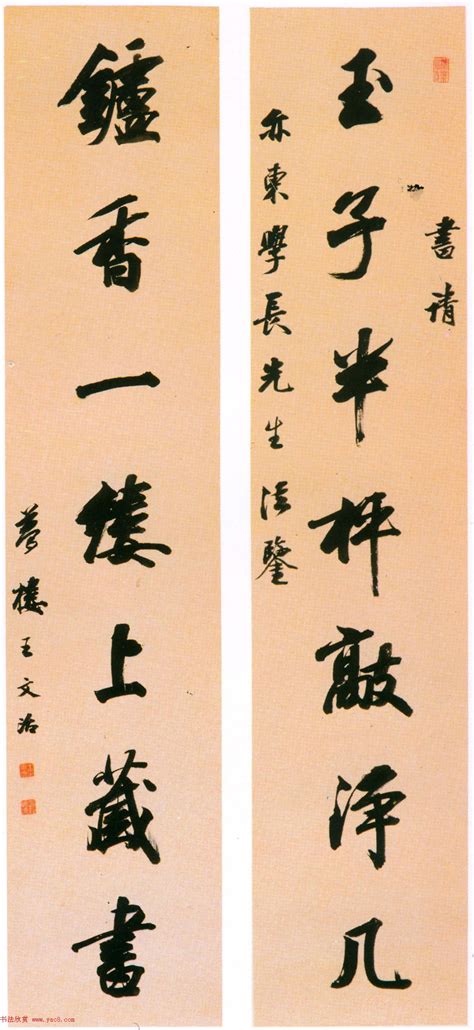 书请
玉子半枰敲净几
亦東學長先生法鑒
鑪香一缕上藏書
夢樓王文治
书法欣赏 www.yac8.com